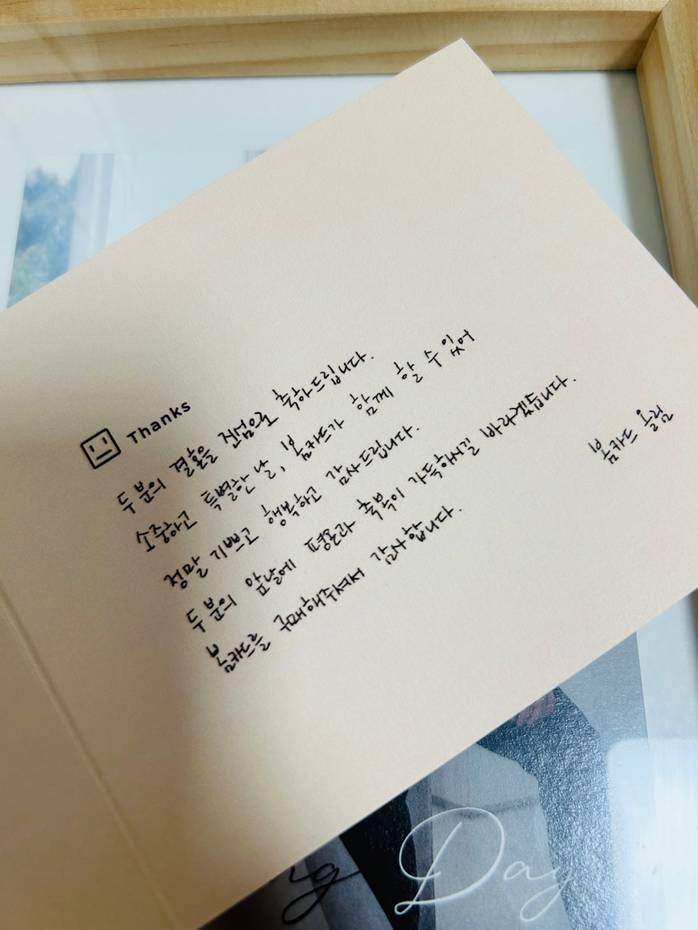 Thanks
두 분의 결혼을 진심으로 축하드립니다.
소중하고 특별한 날, 봄카드가 함께 할 수 있어
정말 기쁘고 행복하고 감사드립니다.
두 분의 앞날에 평온과 축복이 가득하시길 바라겠습니다.
봄카드를 구매해주셔서 감사합니다.
봄카드 올림
ig Day